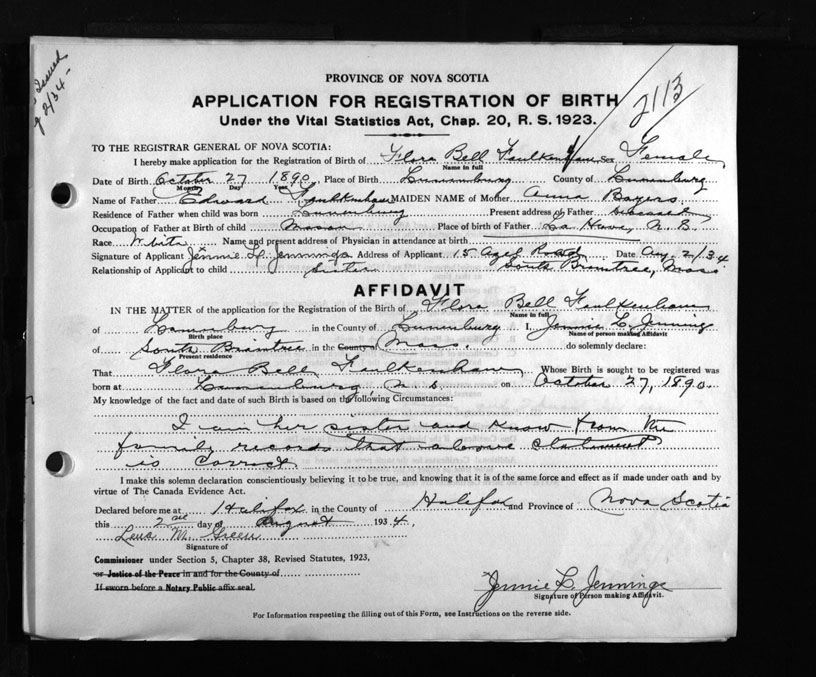 Issued
2/34 -
2113
PROVINCE OF NOVA SCOTIA
APPLICATION FOR REGISTRATION OF BIRTH
Under the Vital Statistics Act, Chap. 20, R. S. 1923.
TO THE REGISTRAR GENERAL OF NOVA SCOTIA:
I hereby make application for the Registration of Birth of Flora Bell Faulkenham Sex Female
Name in full
Date of Birth October 27 1890 Place of Birth Lunenburg County of Lunenburg
Month Day Year
Name of Father Edward Faulkenham MAIDEN NAME of Mother Anna Bayers
Residence of Father when child was born Lunenburg Present address of Father deceased
Occupation of Father at Birth of child Mason Place of birth of Father La Have, N. S.
Race White Name and present address of Physician in attendance at birth
Signature of Applicant Jennie L. Jennings Address of Applicant 15 Road Date Aug. 2/34
Relationship of Applicant to child Sister South Braintree, Mass.
AFFIDAVIT
IN THE MATTER of the application for the Registration of the Birth of Flora Bell Faulkenham
Name in full
of Lunenburg in the County of Lunenburg I, Jennie L. Jennings
Birth place Name of person making Affidavit
of South Braintree in the County of Mass. do solemnly declare:
Present residence
That Flora Bell Faulkenham Whose Birth is sought to be registered was
born at Lunenburg, N. S. on October 27, 1890.
My knowledge of the fact and date of such Birth is based on the following Circumstances:
I am her sister and know from the
family records that above statement
is correct
I make this solemn declaration conscientiously believing it to be true, and knowing that it is of the same force and effect as if made under oath and by
virtue of The Canada Evidence Act.
Declared before me at Halifax in the County of Halifax and Province of Nova Scotia
this 2nd day of August 1934,
Lena M. Green
Signature of
Commissioner under Section 5, Chapter 38, Revised Statutes, 1923,
or Justice of the Peace in and for the County of
If sworn before a Notary Public affix seal.
Jennie L. Jennings
Signature of Person making Affidavit.
For Information respecting the filling out of this Form, see Instructions on the reverse side.